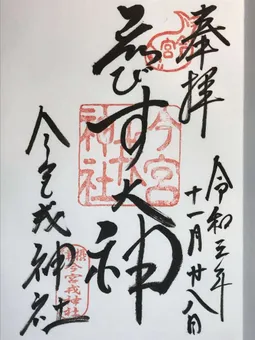 奉拝
令和三年
十一月廿八日
ゑびす大神
今宮戎神社
今宮
神社
今宮戎神社